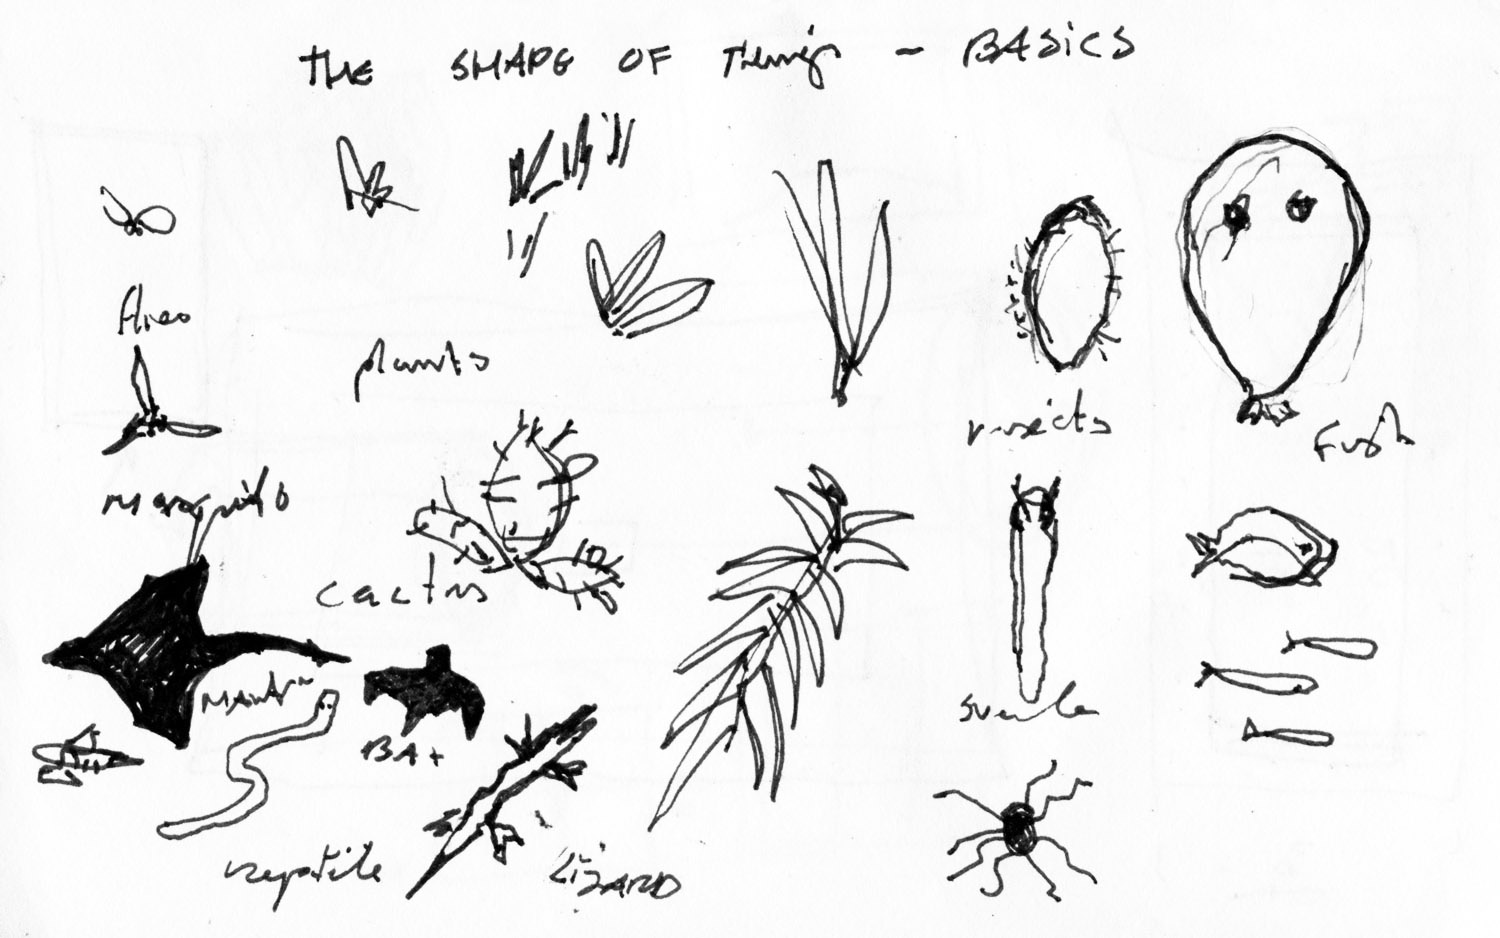 THE SHAPE OF Things - BASiCS
flies
plants
insects
Fish
Mosquito
cactus
Manta
BAt
reptile
LiZARD